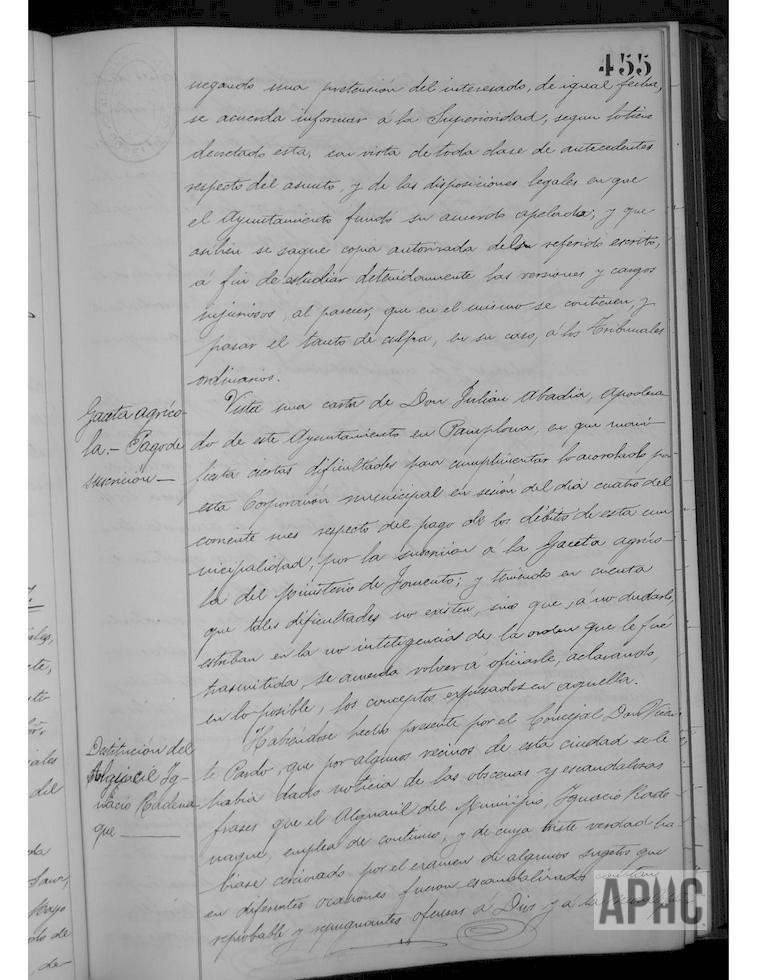 455
negando una pretensión del interesado, de igual fecha,
se acuerda informar á la Superioridad, segun lo tiene
decretado esta, con vista de toda clase de antecedentes
respecto del asunto, y de las disposiciones legales en que
el Ayuntamiento fundó su acuerdo apelado; y que
se saque copia autorizada del referido escrito,
á fin de estudiar detenidamente las versiones y cargos
injuriosos, al parecer, que en el mismo se contienen, y
pasar el tanto de culpa, en su caso, á los Tribunales
ordinarios.
Gaceta agríco-
la.- Pago de
suscrición —
Vista una carta de Don Julian Abadia, Apodera-
do de este Ayuntamiento en Pamplona, en que mani-
fiesta ciertas dificultades para cumplimentar lo acordado por
esta Corporación municipal en sesión del día cuatro del
corriente mes respecto del pago de los débitos de esta mu-
nicipalidad, por la suscricion á la Gaceta agríco-
la del Ministerio de Fomento; y teniendo en cuenta
que tales dificultades no existen, sino que, á no dudarlo,
estriban en la no inteligencia de la orden que le fué
trasmitida, se acuerda volver á oficiarle, aclarando,
en lo posible, los conceptos expresados en aquella.
Destitución del
Alguacil Ig-
nacio Radena-
que —
Habiéndose hecho presente por el Concejal Don Vicen-
te Pardo, que por algunos vecinos de esta ciudad se le
habia dado noticia de las obscenas y escandalosas
frases que el Alguacil del Municipio, Ignacio Rade-
naque, emplea de continuo, y de cuya triste verdad ha-
biase cerciorado por el examen de algunos sugetos que
en diferentes ocasiones fueron escandalizados con tan
reprobable y repugnantes ofensas á Dios y á la
APHC